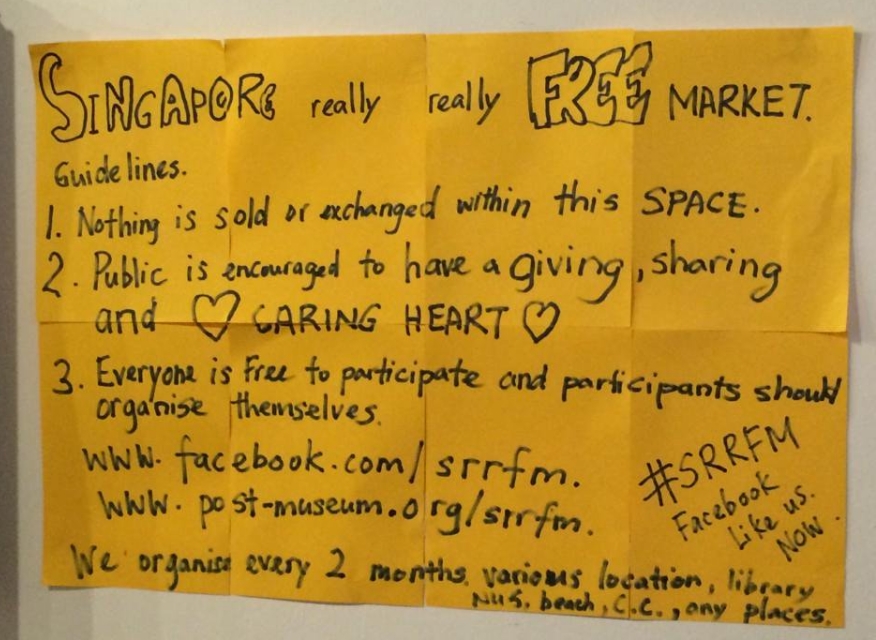 SINGAPORE really really FREE MARKET.
Guidelines.
1. Nothing is sold or exchanged within this SPACE.
2. Public is encouraged to have a giving, sharing
and ♡ CARING HEART ♡
3. Everyone is Free to participate and participants should
organise themselves.
www.facebook.com/srrfm.
www.post-museum.org/srrfm.
#SRRFM
Facebook
Like us.
NOW.
We organise every 2 months. various location, library
NUS. beach, C.C., any places.